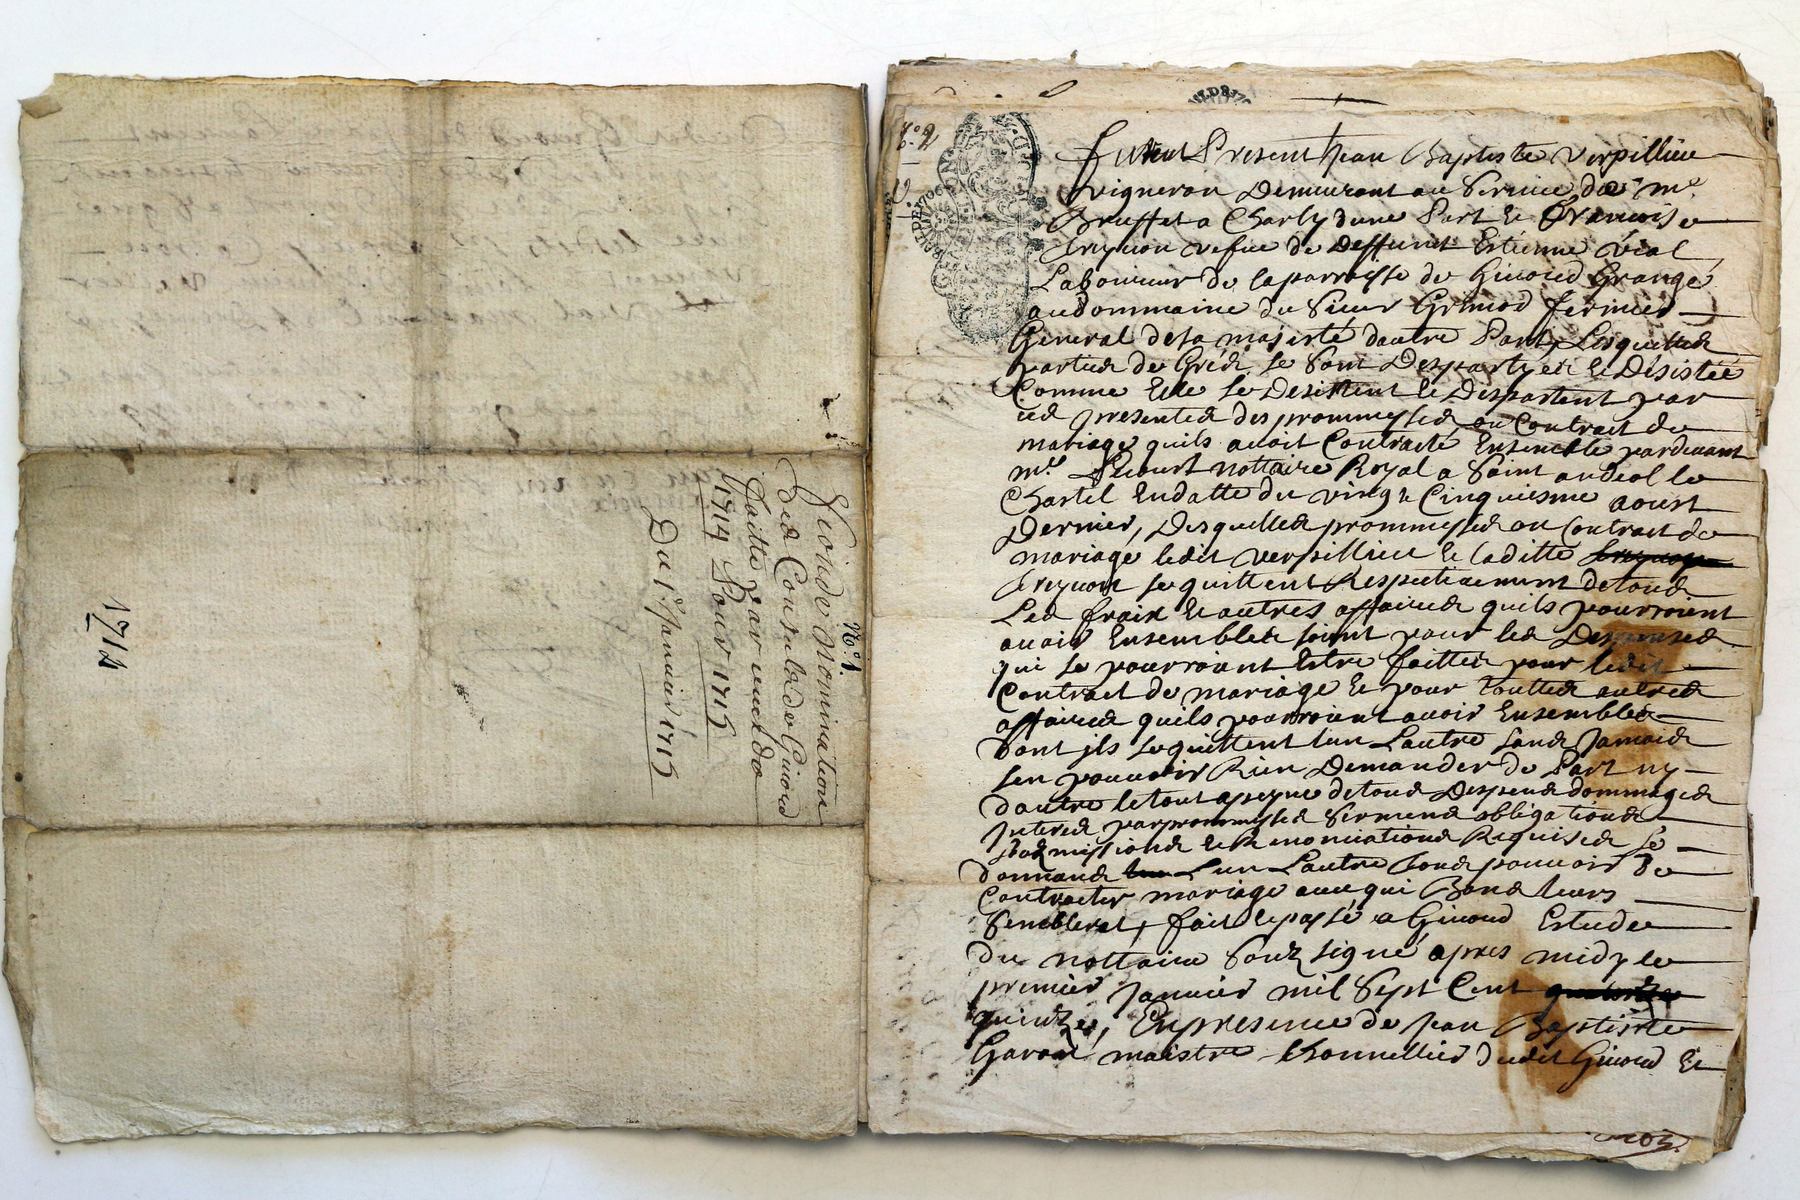 N.° 1.
Nomination
des Consulx de Givord
faitte par
1714 Pour 1715
Du 1er Janvier 1715
1714
N.° 2
Furent Present Jean Baptiste Verpillieu
vigneron Demeurant au Service de mr
Bruffet a Charly dune Part et Francoise
vefue de Deffunt Estienne vial
Laboureur de la parroysse de Givord Grange
au dommaine du Sieur Grimod fermier
General de sa majesté dautre Part, Lesquelles
parties de Gréd se sont Despartyes et Désistée
Comme Elle se Desistent et Despartent par
ces presentes des prommesses ou Contract de
mariage quils avoit Contracté Ensemble pardevant
mre nottaire Royal a Saint andeol le
Chastel En datte du vingt Cinquiesme aoust
Dernier, Desquelles prommesses ou Contract de
mariage ledit verpillieu et laditte
se quittent Respectivement de tous
Les fraix et autres affaires quils pourroient
avoir Ensembles soint pour les Despenses
qui se pourroient Estre faittes pour ledit
Contract de mariage et pour touttes autres
affaires quils pourroient avoir Ensembles
Dont jls se quittent lun Lautre sans Jamais
sen pouvoir Rien Demander de Part ny
dautre le tout a peyne de tous Despens dommages
Interes par prommesses Sermens obligations
soubmissions et Renonciations Requises se
donnans Lun Lautre tous pouvoir De
Contracter mariage avec qui Bons leurs
Semblerat, fait et passé a Givord Estude
du nottaire Soubz signé apres midy le
premier Janvier mil Sept Cent quatorze
quinze, En presence de Jean Baptiste
maistre thonnellier dudit Givord Et